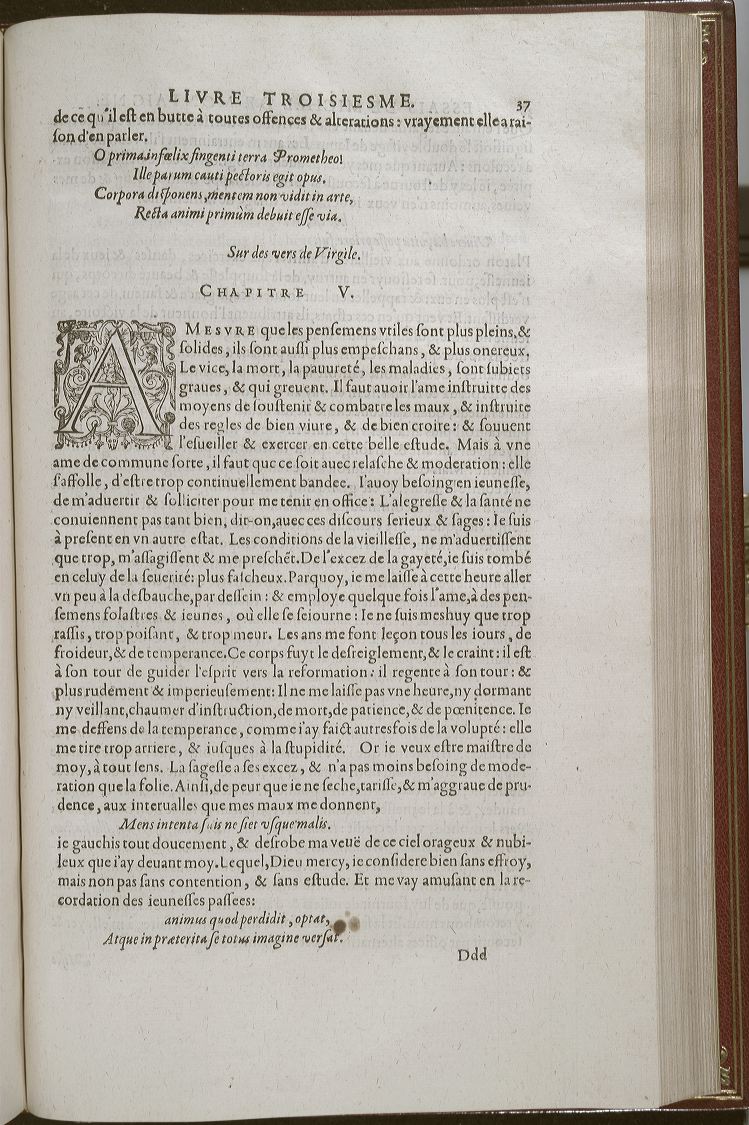 LIVRE TROISIESME. 37
de ce qu'il est en butte à toutes offences & alterations : vrayement elle a rai-
son d'en parler.
O prima infœlix fingenti terra Prometheo!
Ille parum cauti pectoris egit opus.
Corpora disponens, mentem non vidit in arte,
Recta animi primùm debuit esse via.
Sur des vers de Virgile.
CHAPITRE V.
A MESVRE que les pensemens vtiles sont plus pleins, &
solides, ils sont aussi plus empeschans, & plus onereux.
Le vice, la mort, la pauureté, les maladies, sont subiets
graues, & qui greuent. Il faut auoir l'ame instruitte des
moyens de soustenir & combatre les maux, & instruite
des regles de bien viure, & de bien croire : & souuent
l'esueiller & exercer en cette belle estude. Mais à vne
ame de commune sorte, il faut que ce soit auec relasche & moderation : elle
s'affolle, d'estre trop continuellement bandee. I'auoy besoing en ieunesse,
de m'aduertir & solliciter pour me tenir en office : L'alegresse & la santé ne
conuiennent pas tant bien, dit-on, auec ces discours serieux & sages : Ie suis
à present en vn autre estat. Les conditions de la vieillesse, ne m'aduertissent
que trop, m'assagissent & me preschẽt. De l'excez de la gayeté, ie suis tombé
en celuy de la seuerité : plus fascheux. Parquoy, ie me laisse à cette heure aller
vn peu à la desbauche, par dessein : & employe quelque fois l'ame, à des pen-
semens folastres & ieunes, où elle se seiourne : Ie ne suis meshuy que trop
rassis, trop poisant, & trop meur. Les ans me font leçon tous les iours, de
froideur, & de temperance. Ce corps fuyt le desreiglement, & le craint : il est
à son tour de guider l'esprit vers la reformation : il regente à son tour : &
plus rudement & imperieusement : Il ne me laisse pas vne heure, ny dormant
ny veillant, chaumer d'instruction, de mort, de patience, & de pœnitence. Ie
me deffens de la temperance, comme i'ay faict autresfois de la volupté : elle
me tire trop arriere, & iusques à la stupidité. Or ie veux estre maistre de
moy, à tout sens. La sagesse a ses excez, & n'a pas moins besoing de mode-
ration que la folie. Ainsi, de peur que ie ne seche, tarisse, & m'aggraue de pru-
dence, aux interualles que mes maux me donnent,
Mens intenta suis ne siet vsque malis.
ie gauchis tout doucement, & desrobe ma veuë de ce ciel orageux & nubi-
leux que i'ay deuant moy. Lequel, Dieu mercy, ie considere bien sans effroy,
mais non pas sans contention, & sans estude. Et me vay amusant en la re-
cordation des ieunesses passees :
animus quod perdidit, optat,
Atque in præterita se totus imagine versat.
Ddd